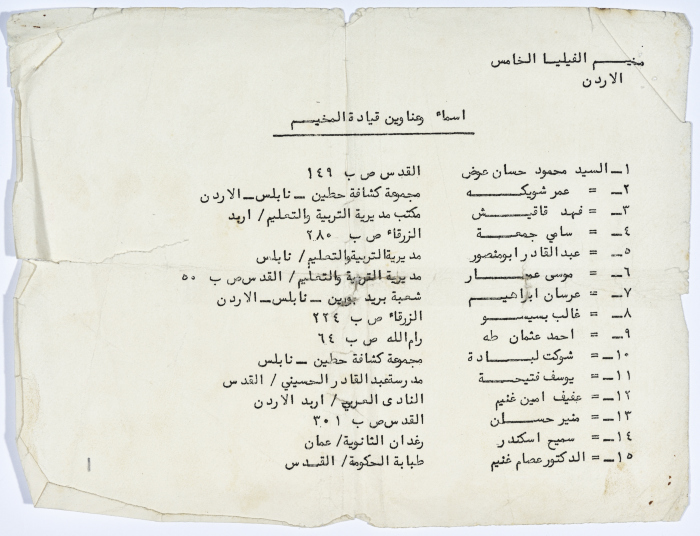 مخيــــم الفيليا الخامس
الاردن
اسماء وعناوين قيادة المخيــم
١ــ السيد محمود حسان عوض القدس ص ب ١٤٩
٢ــ = عمر شويكــــه مجموعة كشافة حطين ــ نابلس ــ الاردن
٣ــ = فهد قاقيــش مكتب مديرية التربية والتعليم/ اربد
٤ــ = سامي جمعــة الزرقاء ص ب ٢٨٠
٥ــ = عبدالقادر ابومنصور مديرية التربية والتعليم/ نابلس
٦ــ = موسى عمــــار مديرية التربية والتعليم/ القدس ص ب ٥٠
٧ــ = عرسان ابراهيــم شعبة بريد بورين ــ نابلس ــ الاردن
٨ــ = غالب بسيســـو الزرقاء ص ب ٢٢٤
٩ــ = احمد عثمان طه رام الله ص ب ٦٤
١٠ــ = شوكت لبــــادة مجموعة كشافة حطين ــ نابلس
١١ــ = يوسف فتيحــــة مدرسة عبد القادر الحسيني/ القدس
١٢ــ = عفيف امين غنيم النادى العربي/ اربد الاردن
١٣ــ = منير حســـان القدس ص ب ٣٠١
١٤ــ = سميح اسكندر رغدان الثانوية/ عمان
١٥ــ = الدكتور عصام غنيم طبابة الحكومة/ القــدس